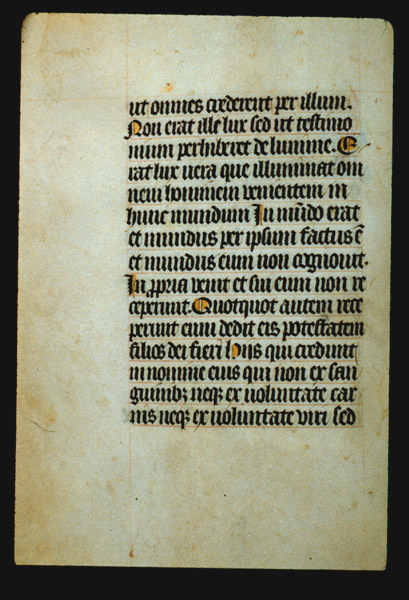 ut omnes crederent per illum.
Non erat ille lux sed ut testimo
nium perhiberet de lumine. E
rat lux uera que illuminat om
nem hominem uenientem in
hunc mundum In mūdo erat
et mundus per ipsum factus ē
et mundus eum non cognouit.
In ꝓpria uenit et sui eum non re
ceperunt. Quotquot autem rece
perunt eum dedit eis potestatem
filios dei fieri hiis qui credunt
in nomine eius qui non ex san
guinibꝫ neqꝫ ex uoluntate car
nis neqꝫ ex uoluntate uiri sed